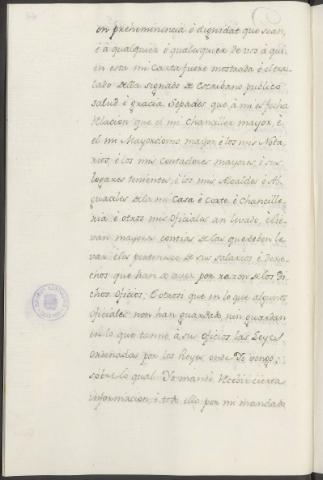 en preheminencia ó dignidat que sean,
é á qualquier ó qualesquier de vos á qui-
en esta mi Carta fuere mostrada ó el tras-
lado della signado de Escribano publico
salud é gracia. Sepades que á mi es fecha
relacion que el mi Chanciller mayor, é
el mi Mayordomo mayor, é los mis Nota-
rios, é los mis Contadores mayores, é sus
logares tenientes, é los mis Alcaldes é Al-
guaciles de la mi Casa é Corte é Chancille-
ria é otros mis Oficiales an levado, é lie-
van mayores contias de las que deben le-
var é les pertenesce de sus salarios é dere-
chos que han de aver por razon de los di-
chos Oficios; é otrosi que en lo que algunos
Oficiales non han guardado, nin guardan
en lo que tanne á sus Oficios las Leyes
ordenadas por los Reyes onde Yo vengo;
sobre lo qual Yo mandé recebir cierta
informacion, é todo ello por mi mandado